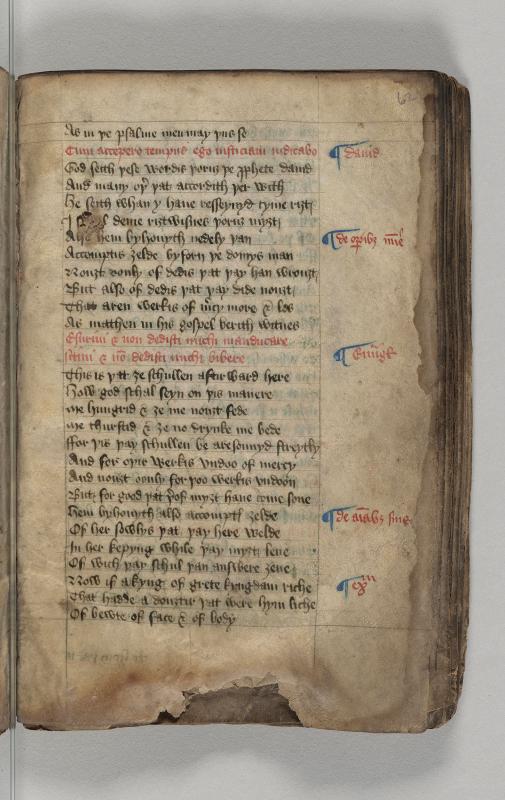 62
As in þe psalme men may þus se
Cum accepero tempus ego iusticias iudicabo
¶ dauid
God seith þese wordis þoruȝ þe prophete dauid
And many oþer þat accordith þer with
He seith whan y haue resseyuyd tyme riȝt
I deme riȝtwisnes þoruȝ myȝt
Also hem byhoueth nedely þan
¶ de operibus
Accomptis ȝelde byforn þe domys man
Nouȝt oonly of dedis þat þay han wrouȝt
But also of dedis þat þay dide nouȝt
That aren werkis of mercy more & les
As matheu in his gospel berith witnes
Esuriui & non dedisti michi manducare
¶ Euangel
sitiui & non dedisti michi bibere
This is þat ȝe schullen aftirward here
How god schal seyn on þis manere
me hungrid & ȝe me nouȝt fede
me thurstid & ȝe no drynke me bede
ffor þis þay schullen be aresounyd streytly
And for oþir werkis vndoo of mercy
And nouȝt oonly for þoo werkis vndoon
But for good þat þerof myȝt haue come sone
Hem byhoueth also accompt ȝelde
¶ de animabus suis
Of her sowlys þat þay here welde
In her kepyng while þay myȝt leue
Of wich þay schul þan answere ȝeue
Now if a kyng of grete kyngdam riche
¶ exm
That hadde a douȝtir þat were hym liche
Of bewte of face & of body